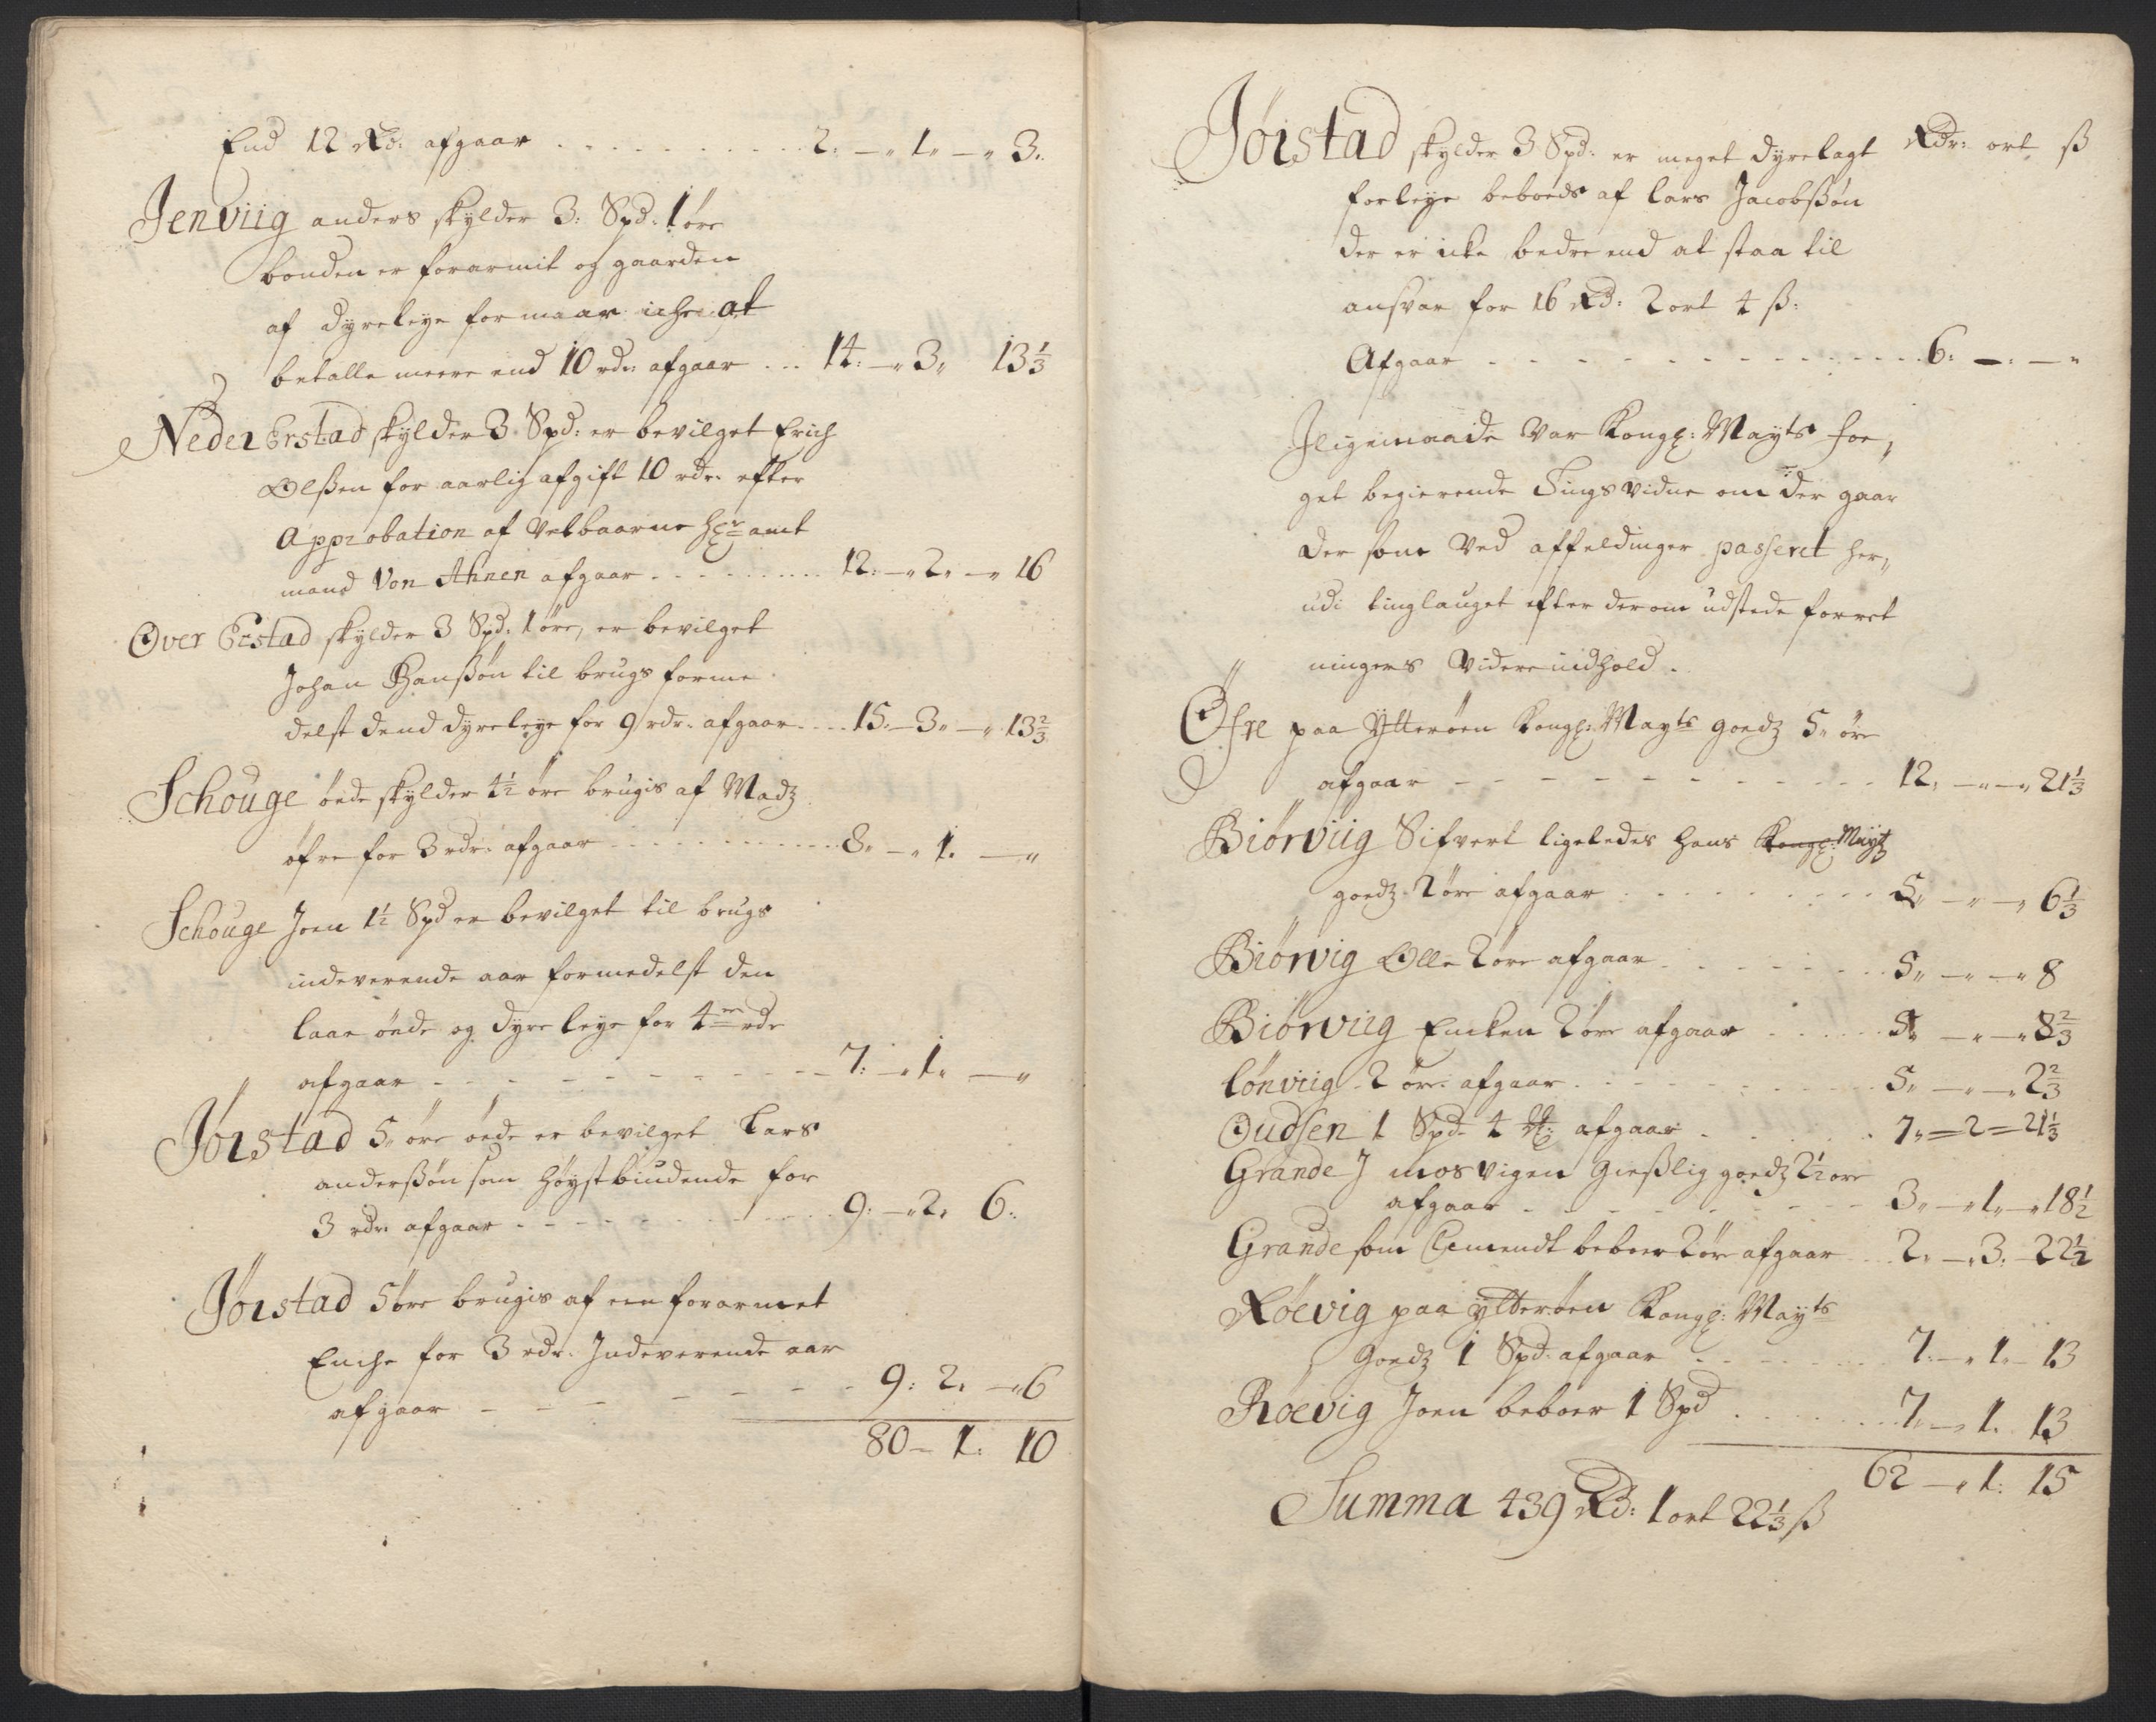 End 12 Rd: afgaar . . . . . . . . . . 2: —„ 1„ —„ 3„
Jenviig anders skylder 3: Spd: 1 öre
bonden er forarmit og gaarden
af dyreleye formaar icke at
betalle meere end 10 rdr: afgaar . . . 14: —„ 3„ 13 1/3
Neder Erstad skylder 3 Spd: er bevilget Erich
Olßen for aarlig afgift 10 rdr: efter
Approbation af Velbaarne Hr: amt
mand Von Ahnen afgaar . . . . . . . 12: —„ 2„ —„ 16
Over Erstad skylder 3 Spd: 1 öre, er bevilget
Johan Hanßön til brugs forme
delst dend dyreleye for 9 rdr: afgaar . . . 15„ — 3„ —„ 13 2/3
Schouge öede skylder 4 1/2 öre brugis af Madz
öfre for 3 rdr: afgaar . . . . . . . . . 8„ —„ 1. —„
Schouge Joen 1 1/2 Spd er bevilget til brugs
indeverende aar formedelst den
laar öede og dyre leye for 4 rdr
afgaar - - - - - - - - - - 7: —„ 1„ —„
Jöistad 5„ öre öede er bevilget Lars
anderßön som höystbiudende for
3 rdr: afgaar - - - - - - - - - 9: —„ 2„ 6:
Jöistad 5 öre brugis af een forarmet
Enche for 3 rdr: Indeverende aar
afgaar - - - - - - - 9: 2„ —„ 6
80 — 1: 10
Jöistad skylder 3 Spd: er meget dyrelagt Rdr: ort ß
forleye beboeds af Lars Jacobßön
der er icke bedre end at staa til
ansvar for 16 Rd: 2 ort 4 ß:
Afgaar - - - - - - - - - - - - 6: —: —„
Iligemaade Var Kongl: Mayts fo„
get begierende Tingsvidne om der gaar
der som Ved affeldinger passeret her„
udi tinglauget efter derom udstede forret
ningers Videre indhold .
Öfre paa Ytteröen Kongl: Mayts goedz 5„ öre
afgaar - - - - - - - - - - - 12„ —„ —„ 21 1/3
Biörviig Sifvert ligeledes hans Kongl: Mayt
goedz 2 öre afgaar . . . . . . . . . 5„ —„ —„ 6 1/3
Biörvig Olle 2 öre afgaar . . . . . . . . 5„ —„ —„ 8
Biörviig Encken 2 öre afgaar . . . . . 5„ —„ —„ 8 2/3
Lönviig 2 öre: afgaar . . . . . . . . . . 5„ —„ —„ 2 2/3
Oudsen 1 Spd 4 afgaar . . . . . . 7„ = 2 = 21 1/3
Grande J mosvigen Gießlig goedz 2 1/2 öre
afgaar - - - - - - - - - - 3„ —„ 1„ —„ 18 1/2
Grande som Clemendt beboer 2 öre afgaar . . 2„ —„ 3: — 22 1/2
Röevig paa ytteröen Kongl: Mayts
Goedz 1 Spd: afgaar . . . . . . . . 7: —„ 1„ — 13
Röevig Joen beboer 1 Spd . . . . . . . 7„ —„ 1. 13
62 —„ 1: 15
Summa 439 Rd: 1 ort 22 1/3 ß